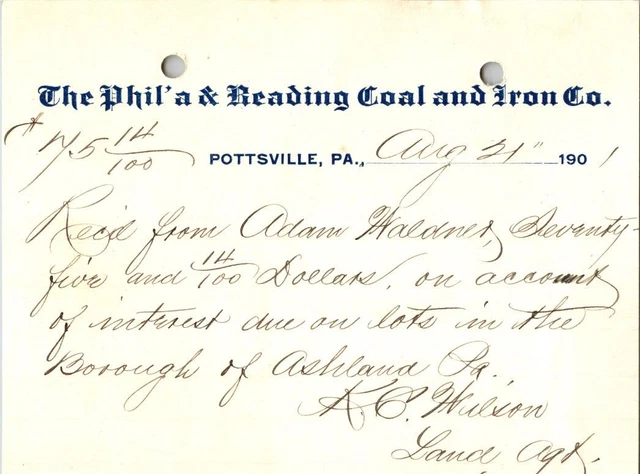 The Phil'a & Reading Coal and Iron Co.
$75 14/100 POTTSVILLE, PA., Aug 21" 1901
Rec'd from Adam Waldner, Seventy-
five and 14/100 Dollars, on account
of interest due on lots in the
Borough of Ashland Pa.
K. C. Wilson
Land Agt.